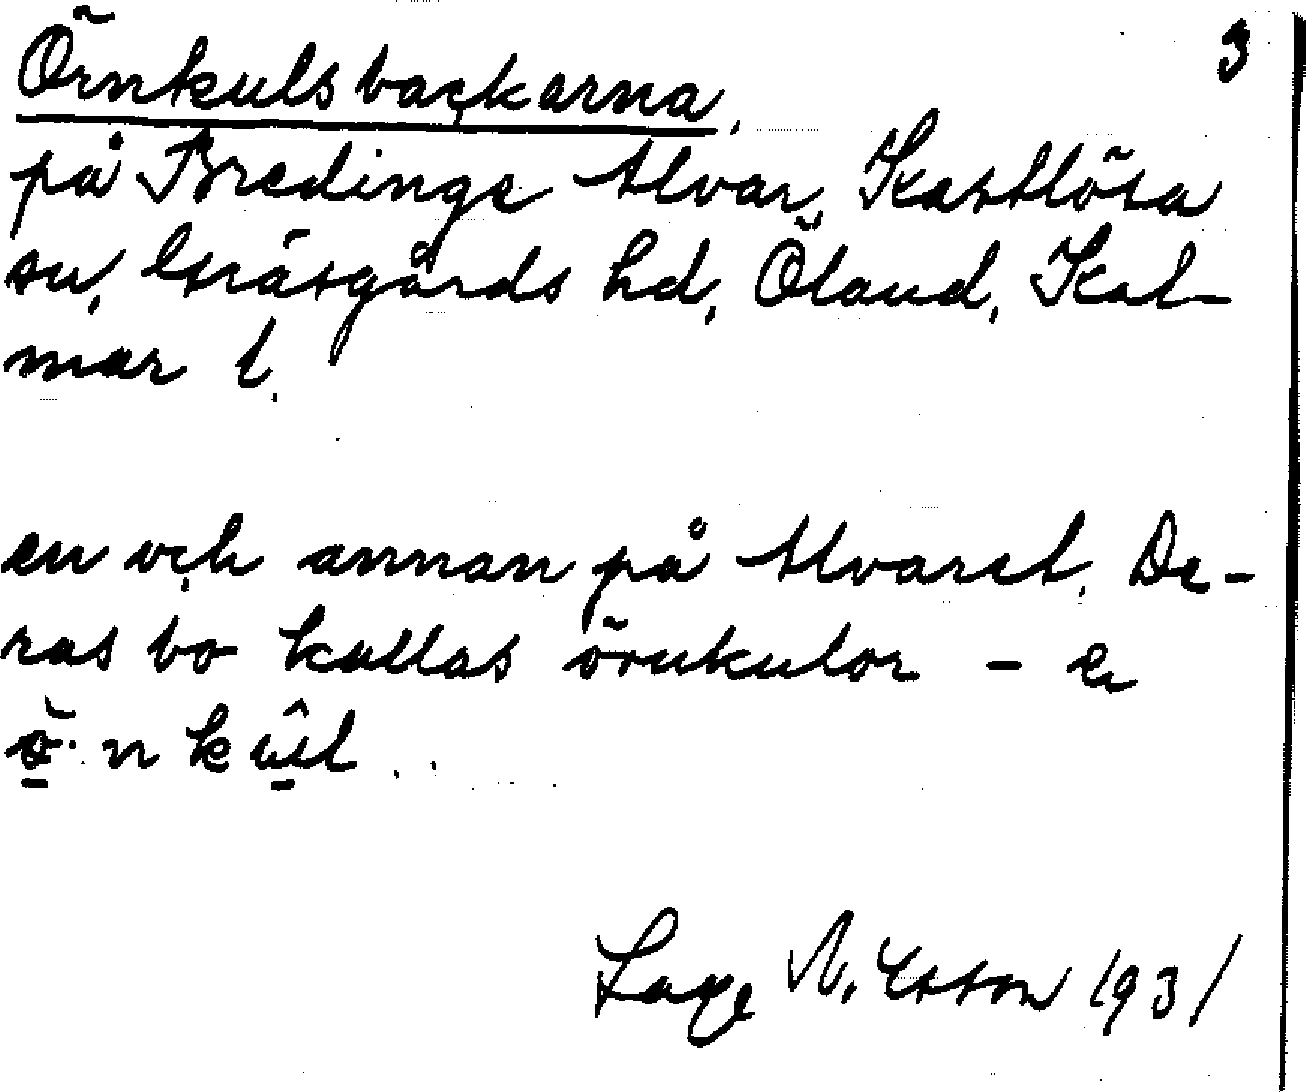 3
Örnkulsbackarna,
på Bredinge Alvar, Kastlösa
sn, Gräsgårds hd, Öland, Kal-
mar l.
en och annan på Alvaret. De-
ras bo kallas örnkulor – en
Lage Nilsson 1931